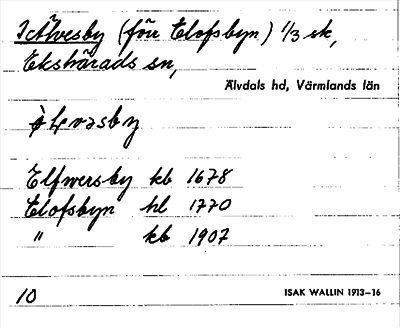 Ölvesby (för Elofsbyn) 1/3 sk,
Ekshärads sn,
Älvdals hd, Värmlands län
Elfwersby kb 1678
Elofsbyn hl 1770
" kb 1907
10 ISAK WALLIN 1913–16